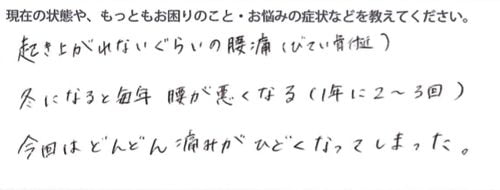 現在の状態や、もっともお困りのこと・お悩みの症状などを教えてください。
起き上がれないぐらいの腰痛(びてい骨付近)
冬になると毎年 腰が悪くなる(1年に2〜3回)
今回はどんどん痛みがひどくなってしまった。